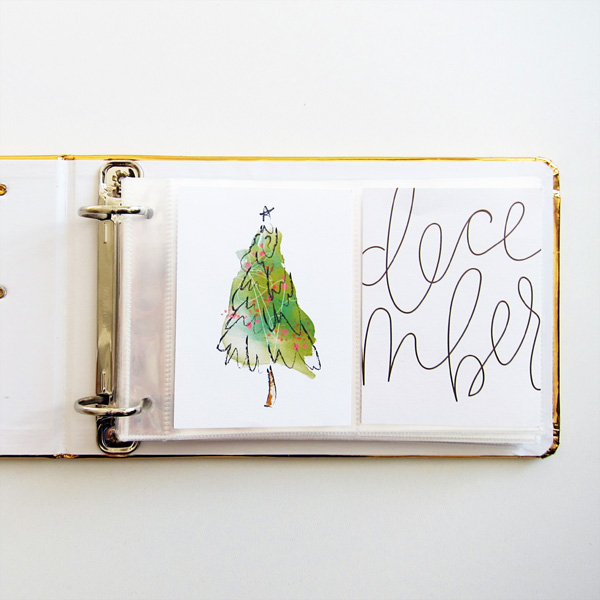 dece
mber